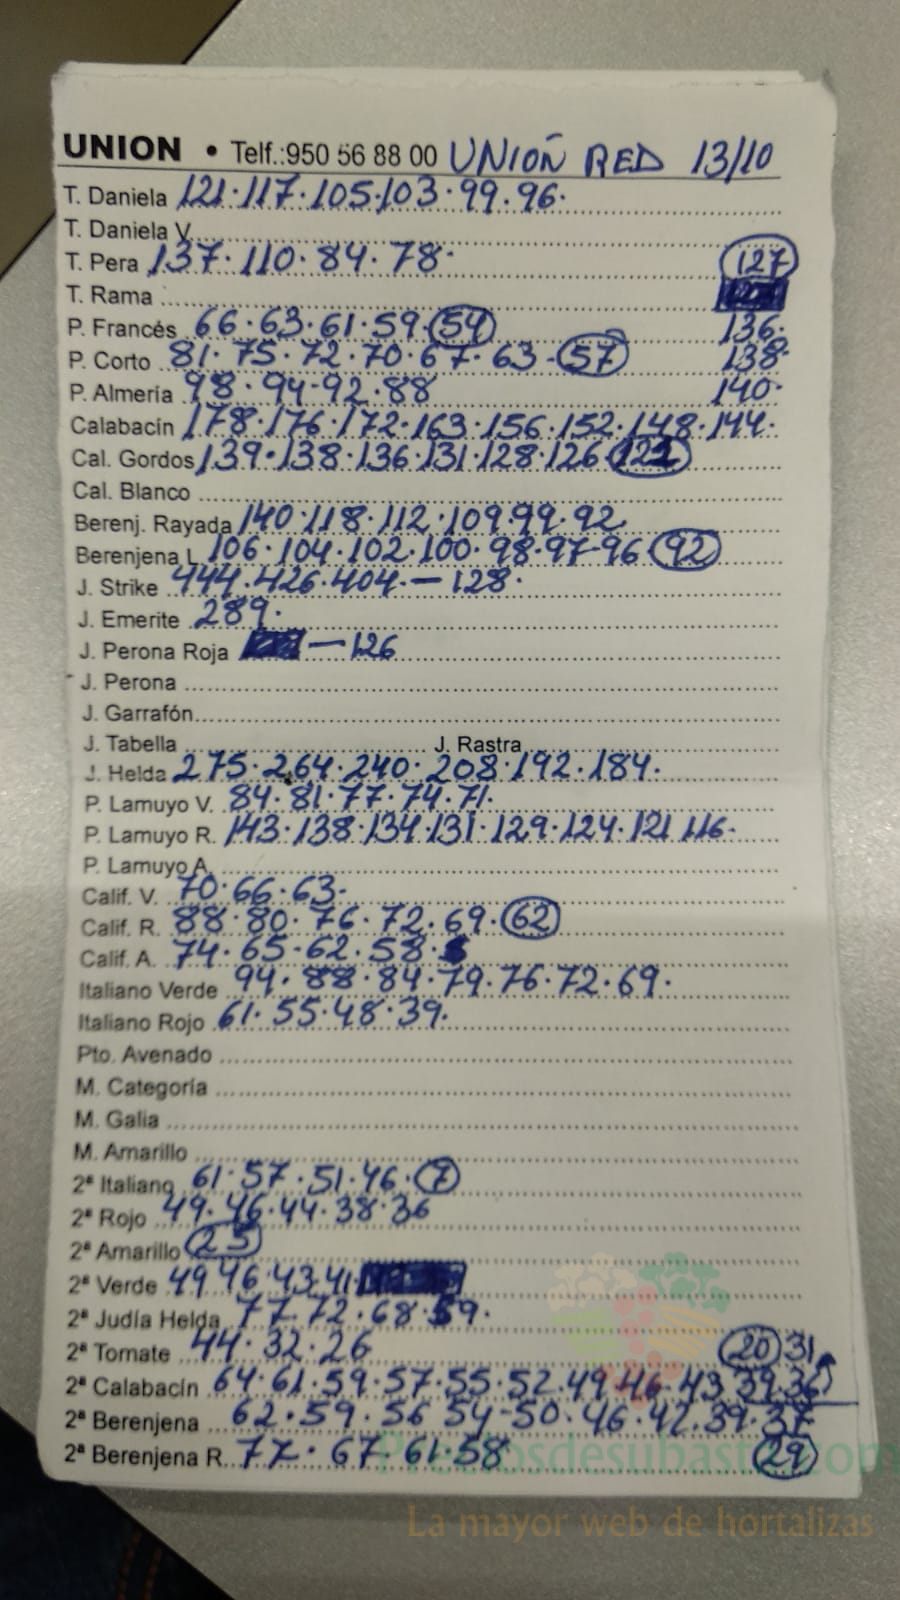 UNION • Telf.:950 56 88 00 UNION RED 13/10
T. Daniela 121·117·105·103·99·96·
T. Daniela V
T. Pera 137·110·84·78· 127
T. Rama
P. Francés 66·63·61·59·54 136·
P. Corto 81·75·72·70·67·63·57 138·
P. Almería 98·94-92·88 140·
Calabacín 178·176·172·163·156·152·148·144·
Cal. Gordos 139·138·136·131·128·126
Cal. Blanco
Berenj. Rayada 140·118·112·109·99·92
Berenjena L 106·104·102·100·98·97-96 92
J. Strike 444·426·404·—128·
J. Emerite 289·
J. Perona Roja —126
J. Perona
J. Garrafón
J. Tabella J. Rastra
J. Helda 275·264·240·208·192·184·
P. Lamuyo V. 84·81·77·74·71·
P. Lamuyo R. 143·138·134·131·129·124·121 116·
P. Lamuyo A.
Calif. V. 70·66·63·
Calif. R. 88·80·76·72·69·62
Calif. A. 74·65·62·58·
Italiano Verde 94·88·84·79·76·72·69·
Italiano Rojo 61·55·48·39·
Pto. Avenado
M. Categoría
M. Galia
M. Amarillo
2ª Italiano 61·57·51·46·7
2ª Rojo 49·46·44·38·36
2ª Amarillo 23
2ª Verde 49 46·43·41·
2ª Judía Helda 77·72·68·59·
2ª Tomate 44·32·26 20 31
2ª Calabacín 64·61·59·57·55·52·49·46·43·39·36
2ª Berenjena 62·59·56 54-50·46·42·39·37
2ª Berenjena R. 77·67·61·58 29
Preciosdesubasta.com
La mayor web de hortalizas